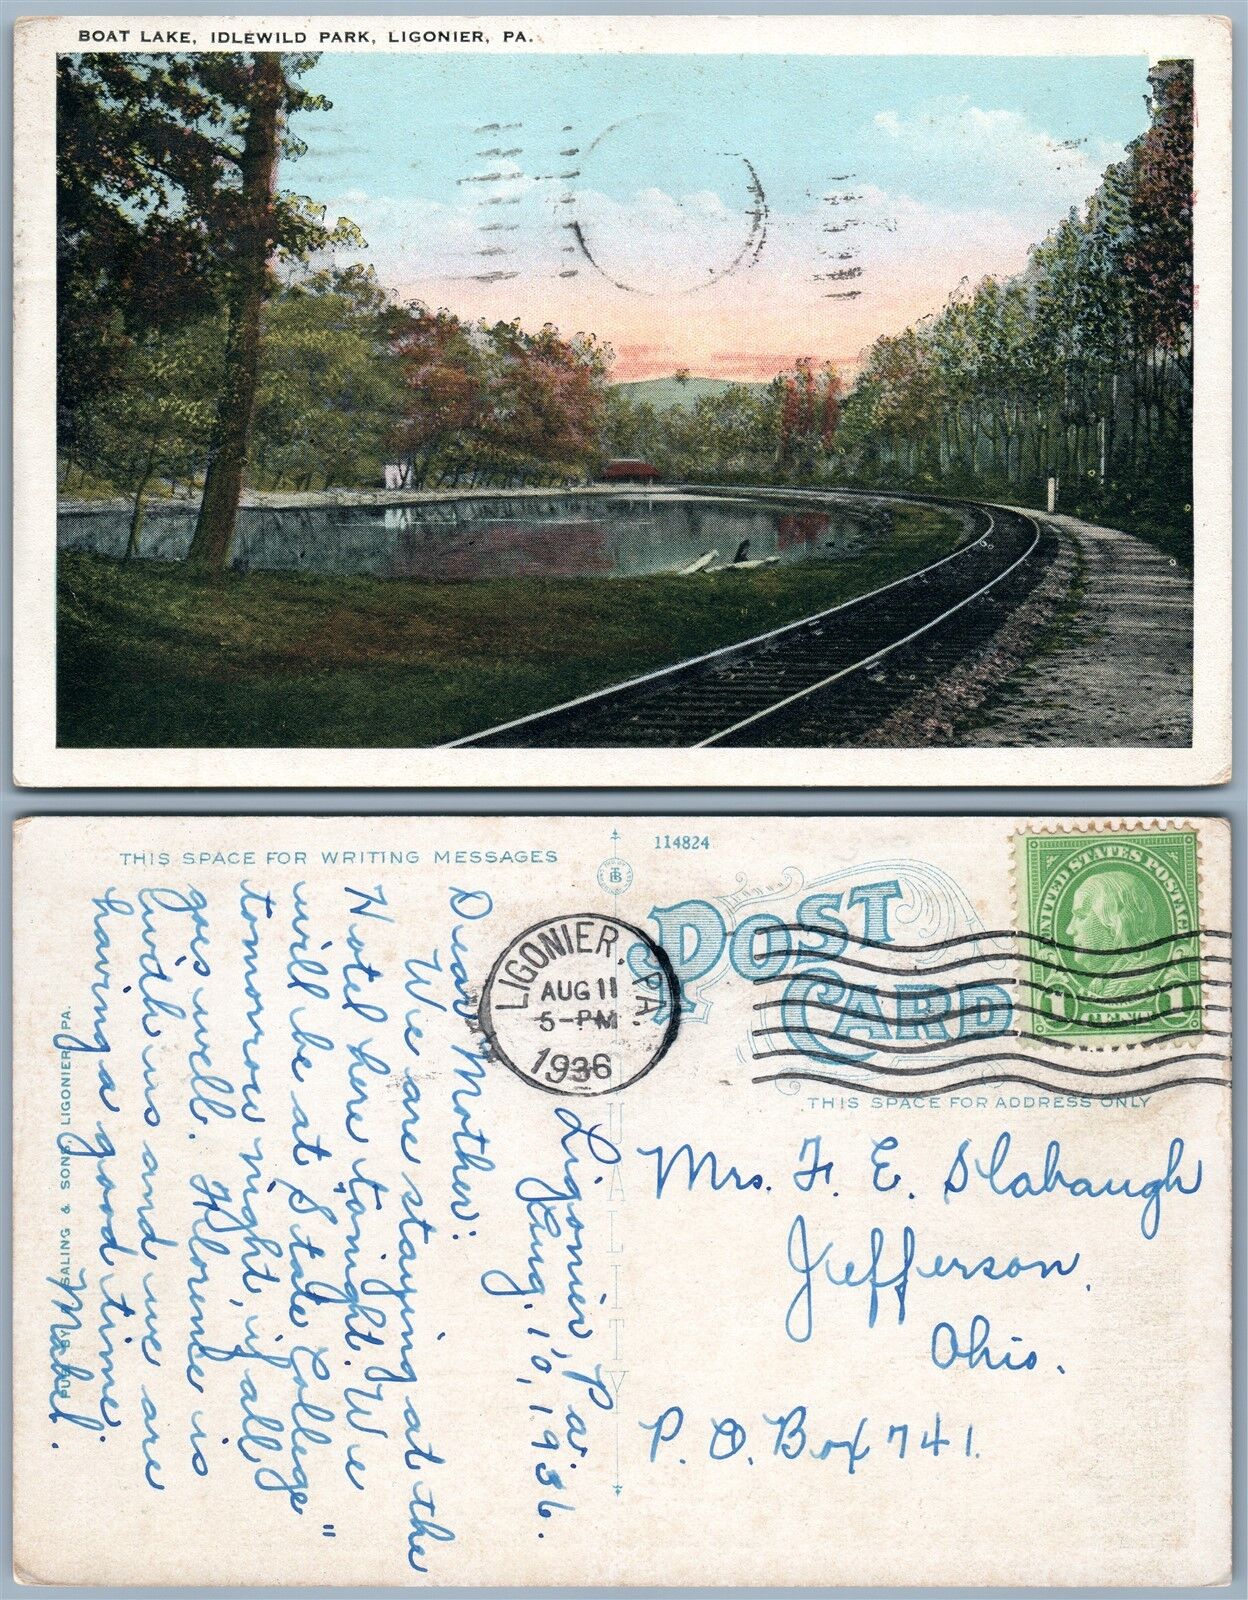 BOAT LAKE, IDLEWILD PARK, LIGONIER, PA.
THIS SPACE FOR WRITING MESSAGES
114824
POST CARD
UNITED STATES POSTAGE
1 CENT 1
LIGONIER, PA.
AUG 11
5-PM
1936
THIS SPACE FOR ADDRESS ONLY
Ligonier, Pa.
Aug. 10, 1936.
Dear Mother:
We are staying at the
Hotel here tonight. We
will be at "State College"
tomorrow night, if all
goes well. Florence is
with us and we are
having a good time.
Mabel.
Mrs. F. E. Slabaugh
Jefferson,
Ohio.
P. O. Box 741.
SALING & SONS, LIGONIER, PA.
QUALITY